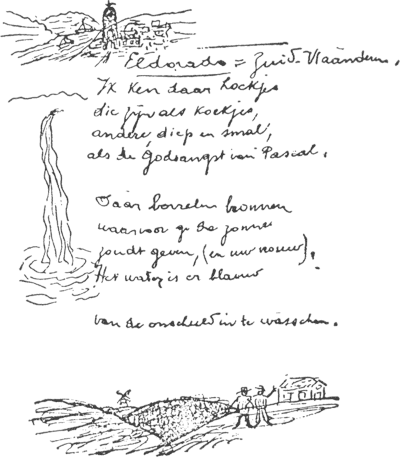 Eldorado = Zuid-Vlaanderen.
Ik ken daar hoekjes
die zijn als koekjes,
andere, diep en smal,
als de Godsangst van Pascal.
Daar borrelen bronnen
waarvoor ge de zonne
zoudt geven, (en uw vrouw).
Het water is er blauw
van de onschuld in te wasschen.